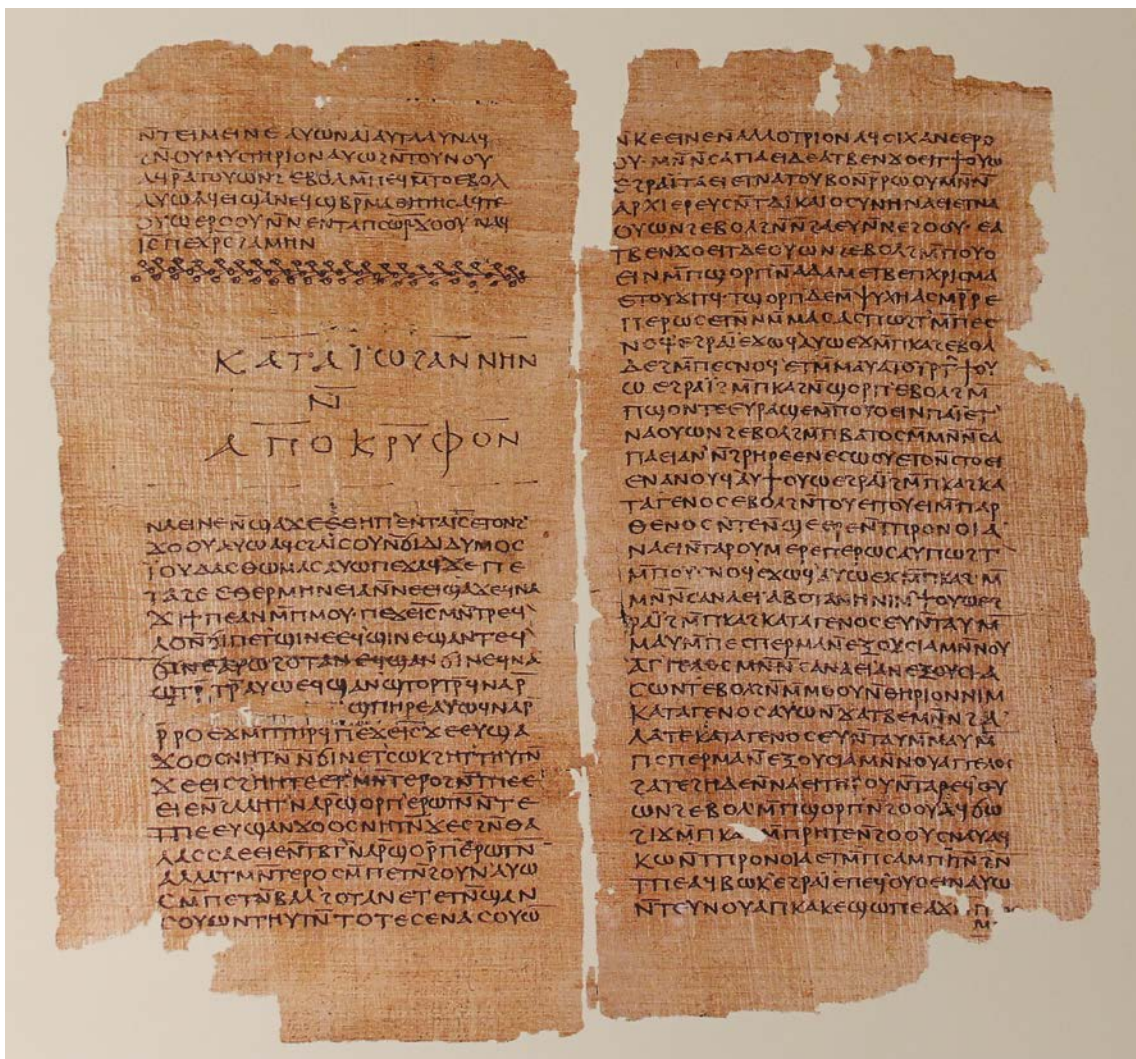 ⲛ̄ⲧⲉⲓⲙⲉⲓⲛⲉ ⲁⲩⲱⲛⲁⲓ̈ⲁⲩⲧⲁⲁⲩⲛⲁϥ
ϩⲛ̄ⲟⲩⲙⲩⲥⲧⲏⲣⲓⲟⲛⲁⲩⲱϩⲛ̄ⲧⲟⲩⲛⲟⲩ
ⲁϥⲣ̄ⲁⲧⲟⲩⲱⲛϩⲉⲃⲟⲗⲙ̄ⲡⲉϥⲙ̄ⲧⲟⲉⲃⲟⲗ
ⲁⲩⲱⲁϥⲉⲓϣⲁⲛⲉϥϣⲃⲣ̄ⲙⲁⲑⲏⲧⲏⲥⲁϥⲧⲉ
ⲟⲩⲱⲉⲣⲟⲟⲩⲛ̄ⲛⲉⲛⲧⲁⲡⲥⲱ̄ⲣ̄ϫⲟⲟⲩ ⲛⲁϥ
ⲓ̄ⲥ̄ⲡⲉⲭ̄ⲣ̄ⲥ̄ϩⲁⲙⲏⲛ
ⲕⲁⲧⲁⲓ̈ⲱϩⲁⲛⲛⲏⲛ
ⲛ̄
ⲁⲡⲟⲕⲣⲩⲫⲟⲛ
ⲛⲁⲉⲓⲛⲉⲛ̄ϣⲁϫⲉⲉⲑⲏⲡ'ⲉⲛⲧⲁⲓ̄ⲥ̄ⲉⲧⲟⲛϩ'
ϫⲟⲟⲩⲁⲩⲱⲁϥⲥϩⲁⲓ̈ⲥⲟⲩⲛ̄ϭⲓⲇⲓⲇⲩⲙⲟⲥ
ⲓ̈ⲟⲩⲇⲁⲥⲑⲱⲙⲁⲥⲁⲩⲱⲡⲉϫⲁϥϫⲉⲡⲉ
ⲧⲁϩⲉⲉⲑⲉⲣⲙⲏⲛⲉⲓⲁⲛ̄ⲛⲉⲉⲓϣⲁϫⲉϥⲛⲁ
ϫⲓϯⲡⲉⲁⲛⲙ̄ⲡⲙⲟⲩ·ⲡⲉϫⲉⲓ̄ⲥ̄ⲙⲛ̄ⲧⲣⲉϥ'
ⲗⲟⲛ̄ϭⲓⲡⲉⲧ'ϣⲓⲛⲉⲉϥϣⲓⲛⲉϣⲁⲛⲧⲉϥ'
ϭⲓⲛⲉⲁⲩⲱϩⲟⲧⲁⲛⲉϥϣⲁⲛϭⲓⲛⲉϥⲛⲁ
ϣⲧⲣ̄ⲧⲣ̄ⲁⲩⲱⲉϥϣⲁⲛϣⲧⲟⲣⲧⲣ̄ϥⲛⲁⲣ̄
ϣⲡⲏⲣⲉⲁⲩⲱϥⲛⲁⲣ̄
ⲣ̄ⲣⲟⲉϫⲙ̄ⲡⲧⲏⲣϥ'ⲡⲉϫⲉⲓ̄ⲥ̄ϫⲉⲉⲩϣⲁ
ϫⲟⲟⲥⲛⲏⲧⲛ̄ⲛ̄ϭⲓⲛⲉⲧ'ⲥⲱⲕϩⲏⲧ'ⲑⲏⲩⲧⲛ̄
ϫⲉⲉⲓⲥϩⲏⲏⲧⲉⲉⲧ'ⲙⲛ̄ⲧⲉⲣⲟϩⲛ̄ⲧⲡⲉⲉ
ⲉⲓⲉⲛ̄ϩⲁⲗⲏⲧ'ⲛⲁⲣ̄ϣⲟⲣⲡ'ⲉⲣⲱⲧⲛ̄ⲛ̄ⲧⲉ
ⲧⲡⲉⲉⲩϣⲁⲛϫⲟⲟⲥⲛⲏⲧⲛ̄ϫⲉⲥϩⲛ̄ⲑⲁ
ⲗⲁⲥⲥⲁⲉⲉⲓⲉⲛ̄ⲧⲃⲧ'ⲛⲁⲣ̄ϣⲟⲣⲡ'ⲉⲣⲱⲧⲛ̄
ⲁⲗⲗⲁⲧⲙⲛ̄ⲧⲉⲣⲟⲥⲙ̄ⲡⲉⲧⲛ̄ϩⲟⲩⲛ'ⲁⲩⲱ
ⲥⲙ̄ⲡⲉⲧⲛ̄ⲃⲁⲗ'ϩⲟⲧⲁⲛⲉⲧⲉⲧⲛ̄ϣⲁⲛ
ⲥⲟⲩⲱⲛⲧⲏⲩⲧⲛ̄ⲧⲟⲧⲉⲥⲉⲛⲁⲥⲟⲩⲱ
ⲛ̄ⲕⲉⲉⲓⲛⲉⲛ̄ⲁⲗⲗⲟⲧⲣⲓⲟⲛⲁϥϭⲓϫⲁⲛⲉⲉⲣⲟ
ⲟⲩ·ⲙⲛ̄ⲛ̄ⲥⲁⲡⲁⲉⲓⲇⲉⲁⲧⲃⲉⲛϫⲟⲉⲓⲧ'ϯⲟⲩⲱ
ⲉϩⲣⲁⲓ̈ⲧⲁⲉⲓⲉⲧⲛⲁⲧⲟⲩⲃⲟⲛ̄ⲣ̄ⲣⲱⲟⲩⲙⲛ̄ⲛ̄
ⲁⲣⲭⲓⲉⲣⲉⲩⲥⲛ̄ⲧⲇⲓⲕⲁⲓⲟⲥⲩⲛⲏⲛⲁⲉⲓⲉⲧⲛⲁ
ⲟⲩⲱⲛϩⲉⲃⲟⲗϩⲛ̄ⲛ̄ϩⲁⲉⲩⲛ̄ⲛⲉϩⲟⲟⲩ·ⲉⲁ
ⲧⲃⲉⲛϫⲟⲉⲓⲧⲇⲉⲟⲩⲱⲛϩⲉⲃⲟⲗϩⲙ̄ⲡⲟⲩⲟ
ⲉⲓⲛⲙ̄ⲡϣⲟⲣⲡ'ⲛ̄ⲁⲇⲁⲙⲉⲧⲃⲉⲡⲭⲣⲓⲥⲙⲁ
ⲉⲧⲟⲩϫⲓⲧϥ·ⲧϣⲟⲣⲡⲇⲉⲙ̄ⲯⲩⲭⲏⲁⲥⲙⲣ̄ⲣⲉ
ⲡⲉⲣⲱⲥⲉⲧⲛ̄ⲛⲙ̄ⲙⲁⲥⲁⲥⲡⲱϩⲧ'ⲙ̄ⲡⲉⲥ
ⲥⲛⲟϥ'ⲉϩⲣⲁⲓ̈ⲉϫⲱϥ'ⲁⲩⲱⲉϫⲙ̄ⲡⲕⲁϩⲉⲃⲟⲗ
ⲇⲉϩⲙ̄ⲡⲉⲥⲛⲟϥ'ⲉⲧⲙ̄ⲙⲁⲩⲁⲡⲟⲩⲣⲧ̄ϯⲟⲩ
ⲱ ⲉϩⲣⲁⲓ̈ϩⲙ̄ⲡⲕⲁϩⲛ̄ϣⲟⲣⲡ'ⲉⲃⲟⲗϩⲙ̄
ⲡϣⲟⲛⲧⲉⲉⲩⲣⲁϣⲉⲙ̄ⲡⲟⲩⲟⲉⲓⲛⲡⲁⲓ̈ⲉⲧ'
ⲛⲁⲟⲩⲱⲛϩⲉⲃⲟⲗϩⲙ̄ⲡⲃⲁⲧⲟⲥⲙⲛ̄ⲛ̄ⲥⲁ
ⲡⲁⲉⲓⲁⲛ'ⲛ̄ϩⲣⲏⲣⲉⲉⲛⲉⲥⲱⲟⲩⲉⲧⲟⲛ̄ⲥⲧⲟⲉⲓ
ⲉⲛⲁⲛⲟⲩϥ'ⲁⲩϯⲟⲩⲱⲉϩⲣⲁⲓ̈ϩⲙ̄ⲡⲕⲁϩⲕⲁ
ⲧⲁⲅⲉⲛⲟⲥⲉⲃⲟⲗϩⲛ̄ⲧⲟⲩⲉⲓⲧⲟⲩⲉⲓⲙ̄ⲡⲁⲣ
ⲑⲉⲛⲟⲥⲛ̄ⲧⲉⲛ̄ϣⲉⲉⲣⲉⲛ̄ⲧⲡⲣⲟⲛⲟⲓⲁ
ⲛⲁⲉⲓⲛ̄ⲧⲁⲣⲟⲩⲙⲉⲣⲉⲡⲉⲣⲱⲥⲁⲩⲡⲱϩⲧ
ⲙ̄ⲡⲟⲩⲥⲛⲟϥ'ⲉϫⲱϥ'ⲁⲩⲱⲉϫⲙ̄ⲡⲕⲁϩ'ⲙ̄
ⲙⲛ̄ⲛ̄ⲥⲁⲛⲁⲉⲓⲁⲃⲟⲧⲁⲛⲏⲛⲓⲙ'ϯⲟⲩⲱⲉϩ
ⲣⲁⲓ̈ϩⲙ̄ⲡⲕⲁϩⲕⲁⲧⲁⲅⲉⲛⲟⲥⲉⲩⲛ̄ⲧⲁⲩⲙ̄
ⲙⲁⲩⲙ̄ⲡⲉⲥⲡⲉⲣⲙⲁⲛ̄ⲉⲝⲟⲩⲥⲓⲁⲙⲛ̄ⲛⲟⲩ
ⲁⲅⲅⲉⲗⲟⲥⲙⲛ̄ⲛ̄ⲥⲁⲛⲁⲉⲓⲁⲛⲉⲝⲟⲩⲥⲓⲁ
ⲥⲱⲛⲧⲉⲃⲟⲗϩⲛ̄ⲙ̄ⲙⲟⲟⲩⲛ̄ⲑⲏⲣⲓⲟⲛⲛⲓⲙ
ⲕⲁⲧⲁⲅⲉⲛⲟⲥⲁⲩⲱⲛ̄ϫⲁⲧⲃⲉⲙⲛ̄ⲛ̄ϩⲁ
ⲗⲁⲧⲉⲕⲁⲧⲁⲅⲉⲛⲟⲥⲉⲩⲛ̄ⲧⲁⲩⲙ̄ⲙⲁⲩⲙ̄
ⲡⲥⲡⲉⲣⲙⲁⲛ̄ⲉⲝⲟⲩⲥⲓⲁⲙⲛ̄ⲛⲟⲩⲁⲅⲅⲉⲗⲟⲥ
ϩⲁⲧⲉϩⲏⲇⲉⲛ̄ⲛⲁⲉⲓⲧⲏⲣⲟⲩⲛ̄ⲧⲁⲣⲉϥⲟⲩ
ⲱⲛϩⲉⲃⲟⲗⲙ̄ⲡϣⲟⲣⲡ'ⲛ̄ϩⲟⲟⲩⲁϥϭⲱ
ϩⲓϫⲙ̄ⲡⲕⲁ ⲙ̄ⲡⲣⲏⲧⲉⲛ̄ϩⲟⲟⲩⲥⲛⲁⲩⲁϥ
ⲕⲱⲛ̄ⲧⲡⲣⲟⲛⲟⲓⲁⲉⲧⲙ̄ⲡⲥⲁⲙⲡⲓⲧⲛ̄ϩⲛ̄
ⲧⲡⲉⲁϥⲃⲱⲕ'ⲉϩⲣⲁⲓ̈ⲉⲡⲉϥⲟⲩⲟⲉⲓⲛⲁⲩⲱ
ⲛ̄ⲧⲉⲩⲛⲟⲩⲁⲡⲕⲁⲕⲉϣⲱⲡⲉⲁϫ ⲡ
ⲙ̄